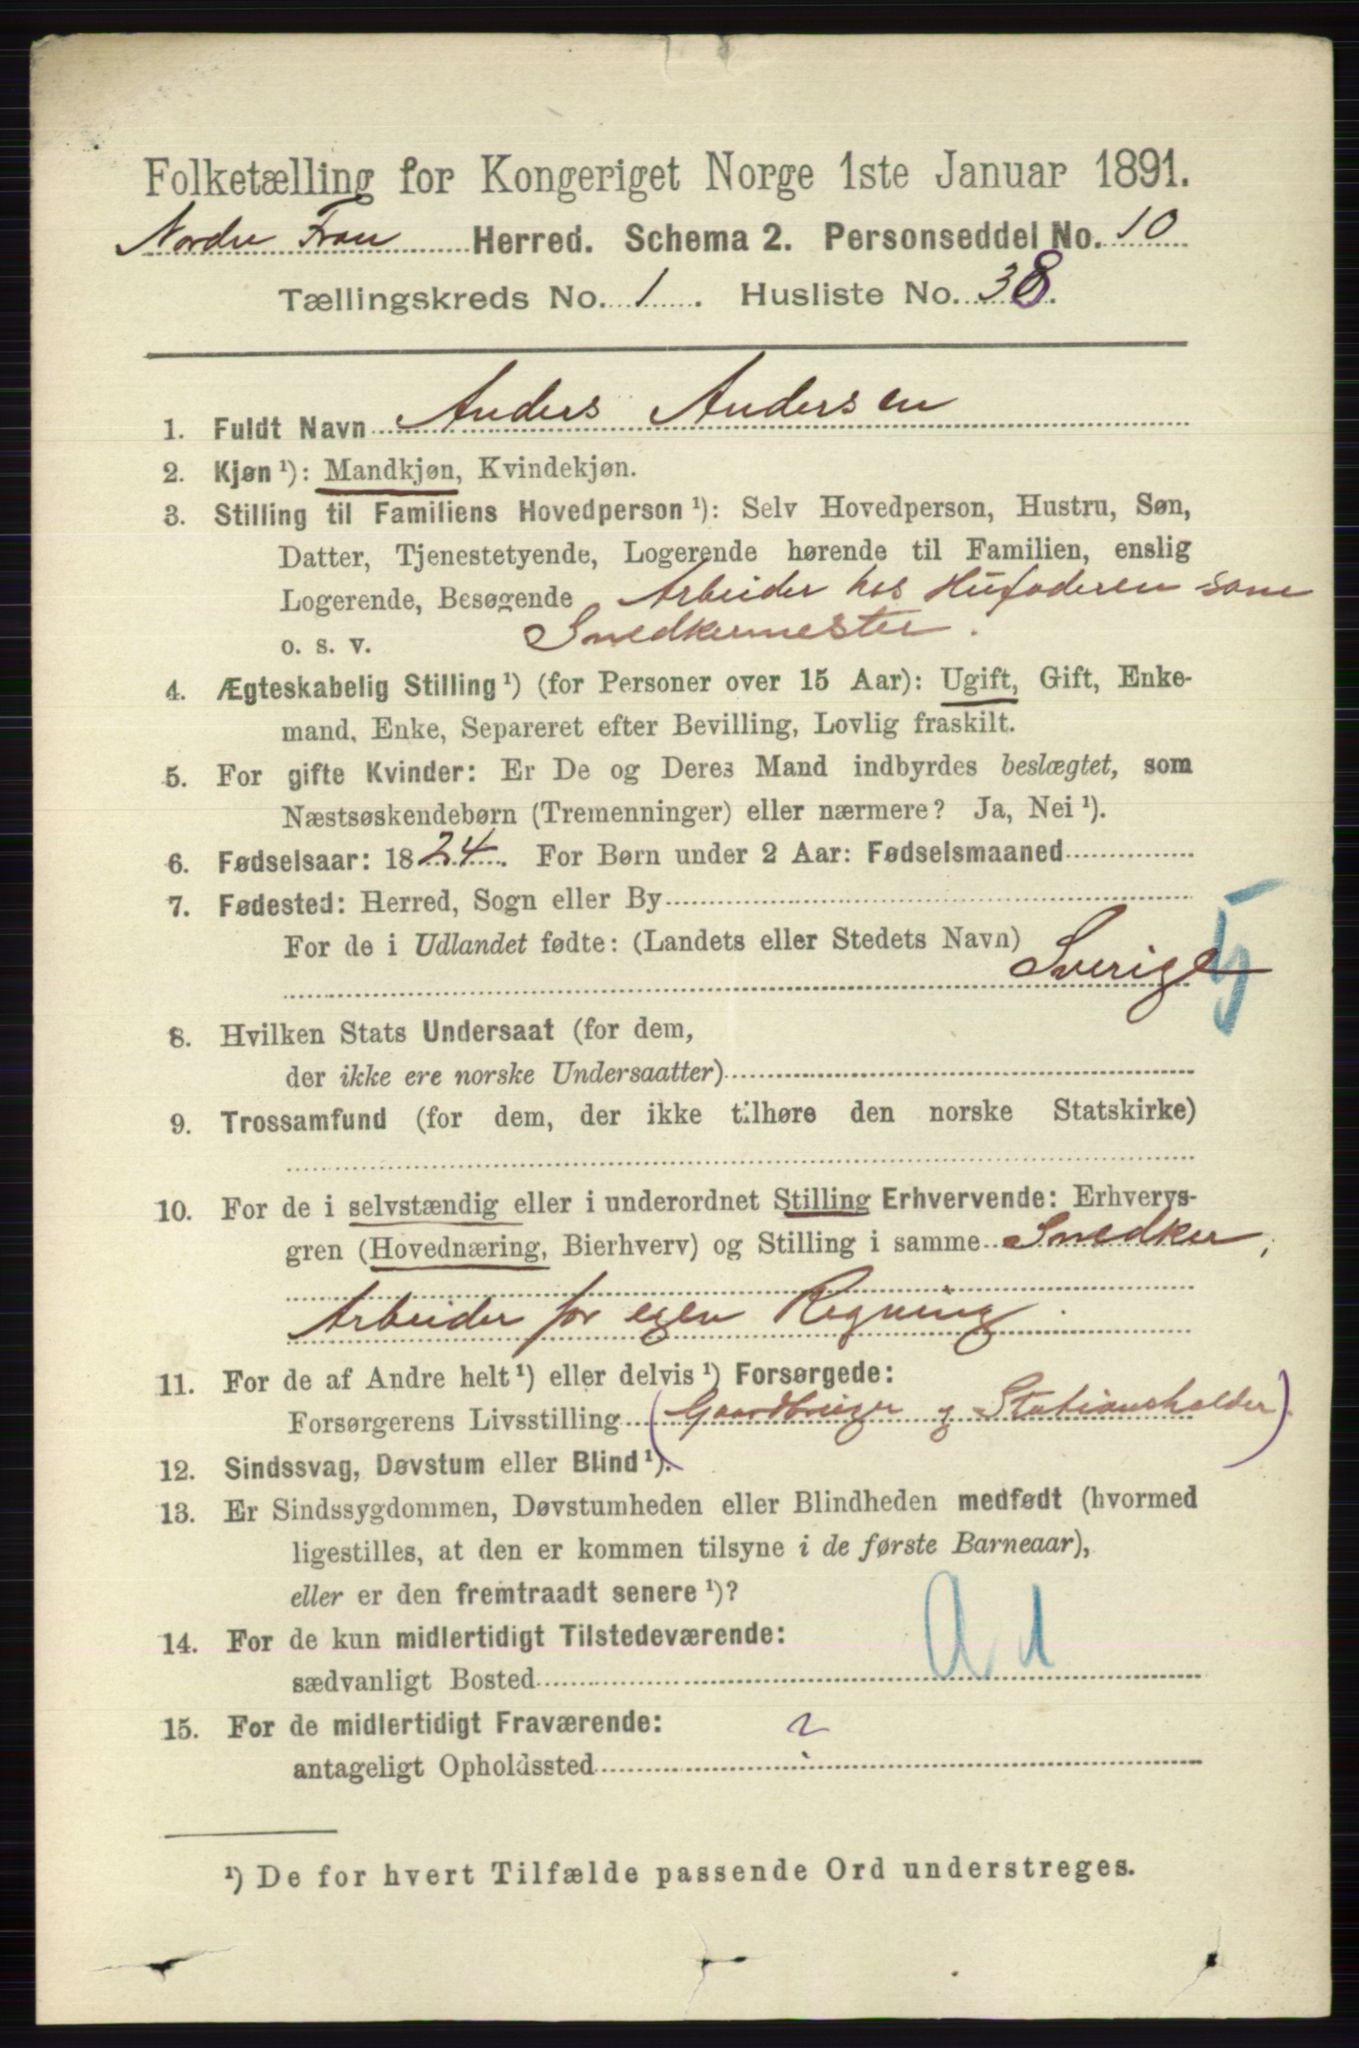 Folketælling for Kongeriget Norge 1ste Januar 1891.
Nordre Fron Herred. Schema 2. Personseddel No. 10
Tællingskreds No. 1. Husliste No. 38.
1. Fuldt Navn Anders Andersen
2. Kjøn ¹): Mandkjøn, Kvindekjøn.
3. Stilling til Familiens Hovedperson ¹): Selv Hovedperson, Hustru, Søn,
Datter, Tjenestetyende, Logerende hørende til Familien, enslig
Logerende, Besøgende Arbeider hos Husfaderen som
o. s. v. Snedkermester.
4. Ægteskabelig Stilling ¹) (for Personer over 15 Aar): Ugift, Gift, Enke-
mand, Enke, Separeret efter Bevilling, Lovlig fraskilt.
5. For gifte Kvinder: Er De og Deres Mand indbyrdes beslægtet, som
Næstsøskendebørn (Tremenninger) eller nærmere? Ja, Nei ¹).
6. Fødselsaar: 1824. For Børn under 2 Aar: Fødselsmaaned
7. Fødested: Herred, Sogn eller By
For de i Udlandet fødte: (Landets eller Stedets Navn)
Sverige
8. Hvilken Stats Undersaat (for dem,
der ikke ere norske Undersaatter)
9. Trossamfund (for dem, der ikke tilhøre den norske Statskirke)
10. For de i selvstændig eller i underordnet Stilling Erhvervende: Erhvervs-
gren (Hovednæring, Bierhverv) og Stilling i samme Snedker,
Arbeider for egen Regning.
11. For de af Andre helt ¹) eller delvis ¹) Forsørgede:
Forsørgerens Livsstilling (Gaardbruger og Stationsholder)
12. Sindssvag, Døvstum eller Blind ¹).
13. Er Sindssygdommen, Døvstumheden eller Blindheden medfødt (hvormed
ligestilles, at den er kommen tilsyne i de første Barneaar),
eller er den fremtraadt senere ¹)?
14. For de kun midlertidigt Tilstedeværende:
sædvanligt Bosted
15. For de midlertidigt Fraværende:
antageligt Opholdssted
¹) De for hvert Tilfælde passende Ord understreges.